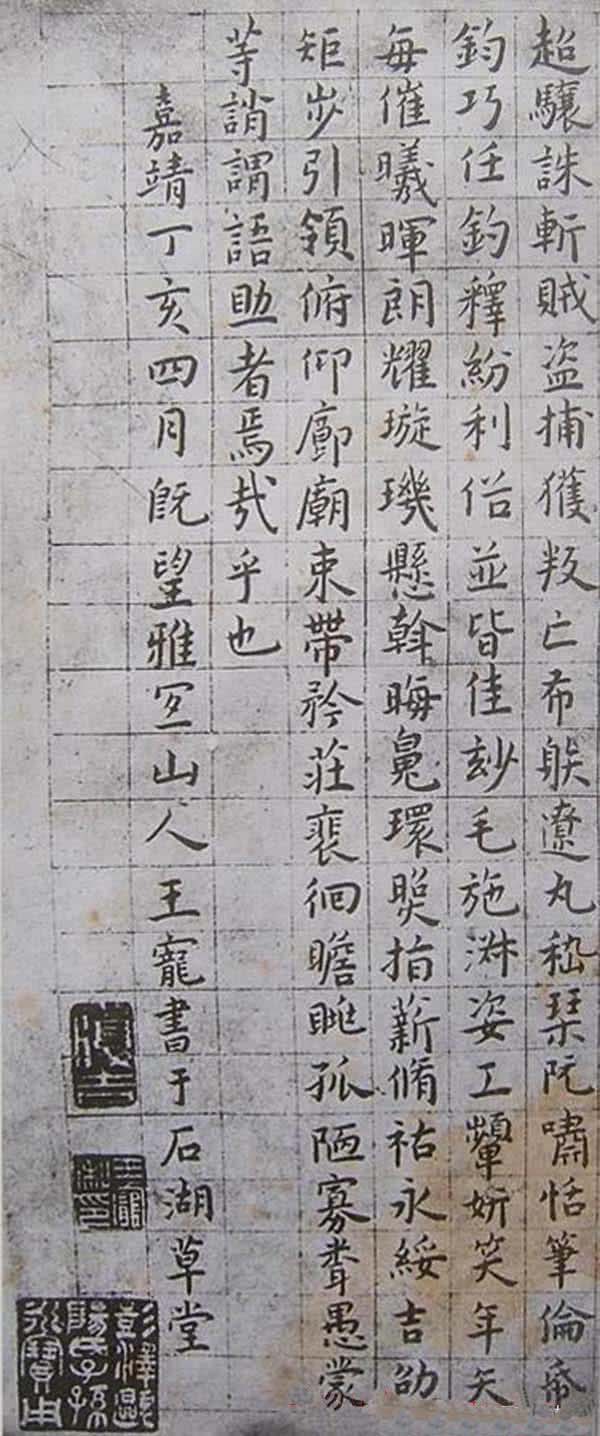 超驤誅斬賊盜捕獲叛亡布躲遼丸嵇琹阮嘯恬筆倫帋
鈞巧任釣釋紛利俗並皆佳玅毛施淋姿工顰妍笑年矢
每催曦暉朗耀璇璣懸斡晦䰟環照指薪脩祜永綏吉劭
矩步引領俯仰廊廟束帶矜莊裵徊瞻眺孤陋寡聞愚蒙
等誚謂語助者焉哉乎也
嘉靖丁亥四月既望雅宜山人王寵書于石湖草堂
王寵